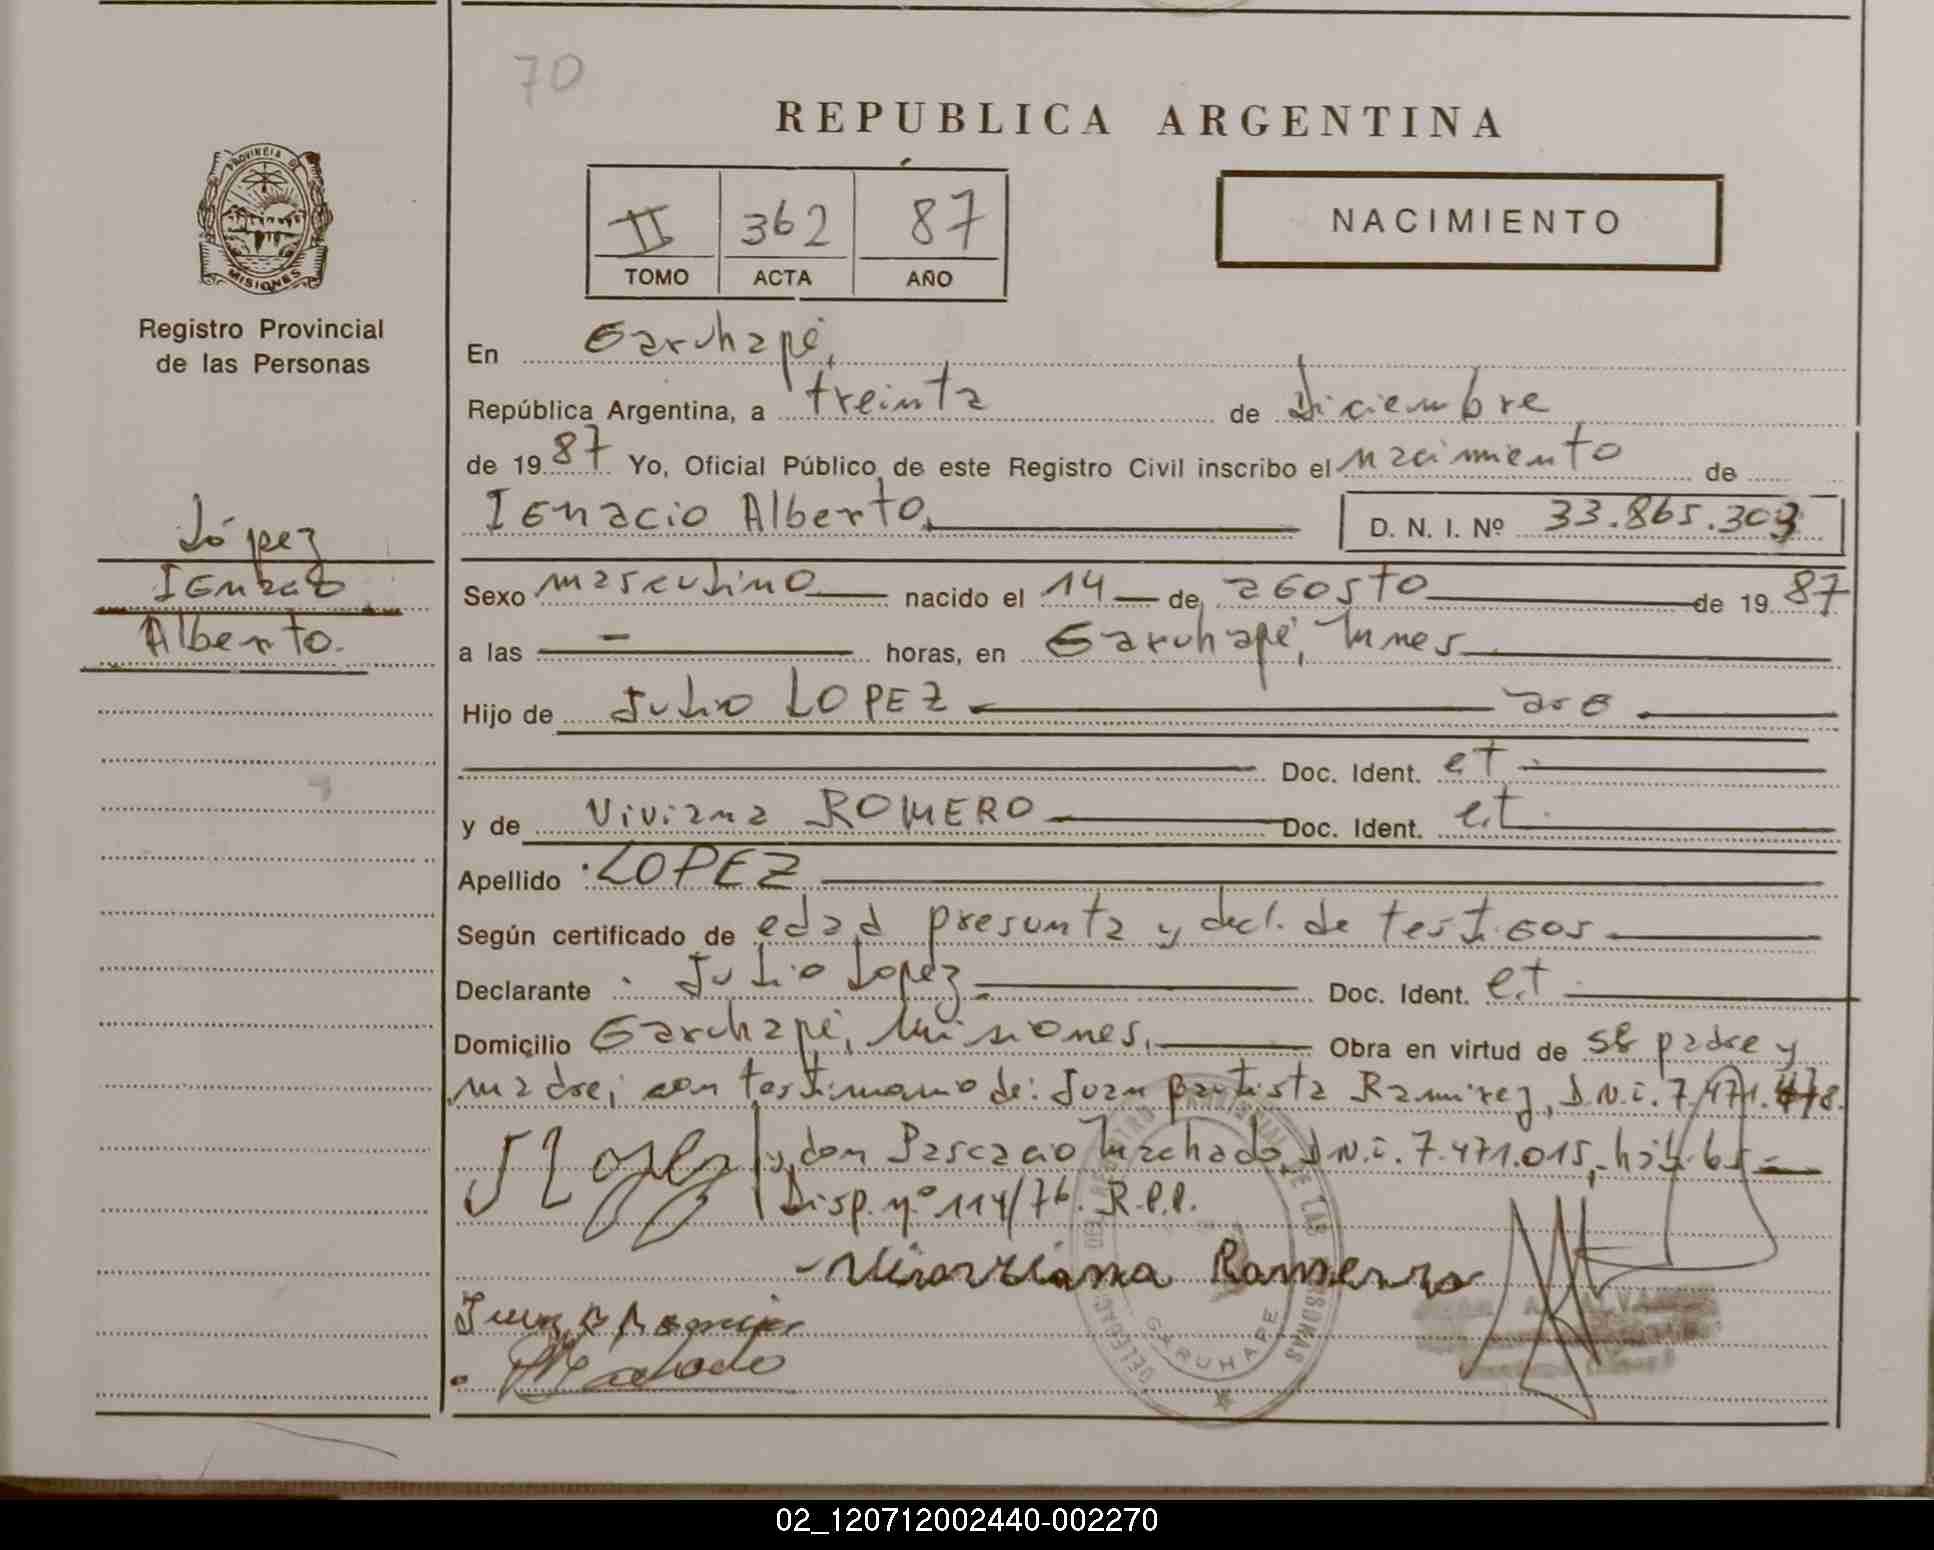 70
REPUBLICA ARGENTINA
II 362 87
TOMO ACTA AÑO
NACIMIENTO
PROVINCIA DE
MISIONES
Registro Provincial
de las Personas
López
Ignacio
Alberto.
En Garuhapé,
República Argentina, a treinta de Diciembre
de 19 87 Yo, Oficial Público de este Registro Civil inscribo el nacimiento de
Ignacio Alberto. D. N. I. Nº 33.865.303
Sexo masculino nacido el 14 de agosto de 19 87
a las — horas, en Garuhapé, Mnes
Hijo de Julio LOPEZ
Doc. Ident. et
y de Viviana ROMERO Doc. Ident. e.t.
Apellido LOPEZ
Según certificado de edad presunta y decl. de testigos
Declarante Julio Lopez Doc. Ident. e.t
Domicilio Garuhapé, Misiones, Obra en virtud de padre y
madre; con testimonio de: Juan Bautista Ramirez, D.N.i. 7.171.478.
y don Pascacio Machado, D.N.i. 7.471.015, hábiles
Disp. nº 114/76. R.P.P.
Romero
DE LAS PERSONAS
GARUHAPE
02_120712002440-002270